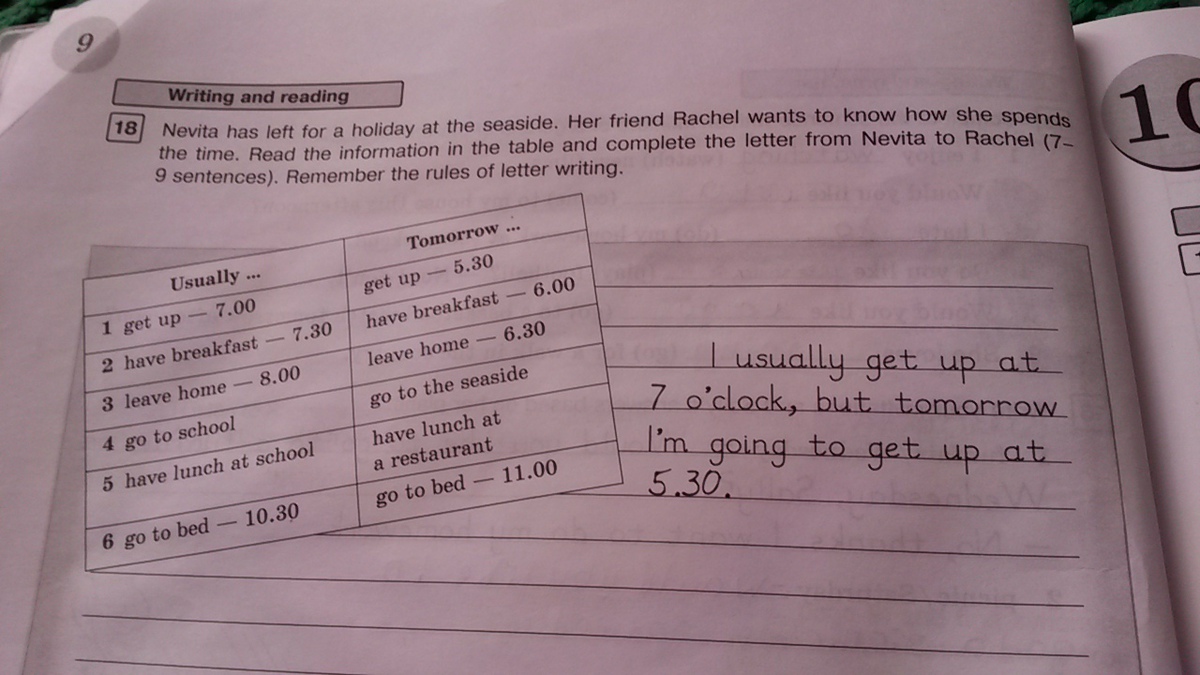 9
Writing and reading
18 Nevita has left for a holiday at the seaside. Her friend Rachel wants to know how she spends
the time. Read the information in the table and complete the letter from Nevita to Rachel (7–
9 sentences). Remember the rules of letter writing.
Usually ...
Tomorrow ...
1 get up — 7.00
get up — 5.30
2 have breakfast — 7.30
have breakfast — 6.00
3 leave home — 8.00
leave home — 6.30
4 go to school
go to the seaside
5 have lunch at school
have lunch at
a restaurant
6 go to bed — 10.30
go to bed — 11.00
I usually get up at
7 o'clock, but tomorrow
I'm going to get up at
5.30.
10